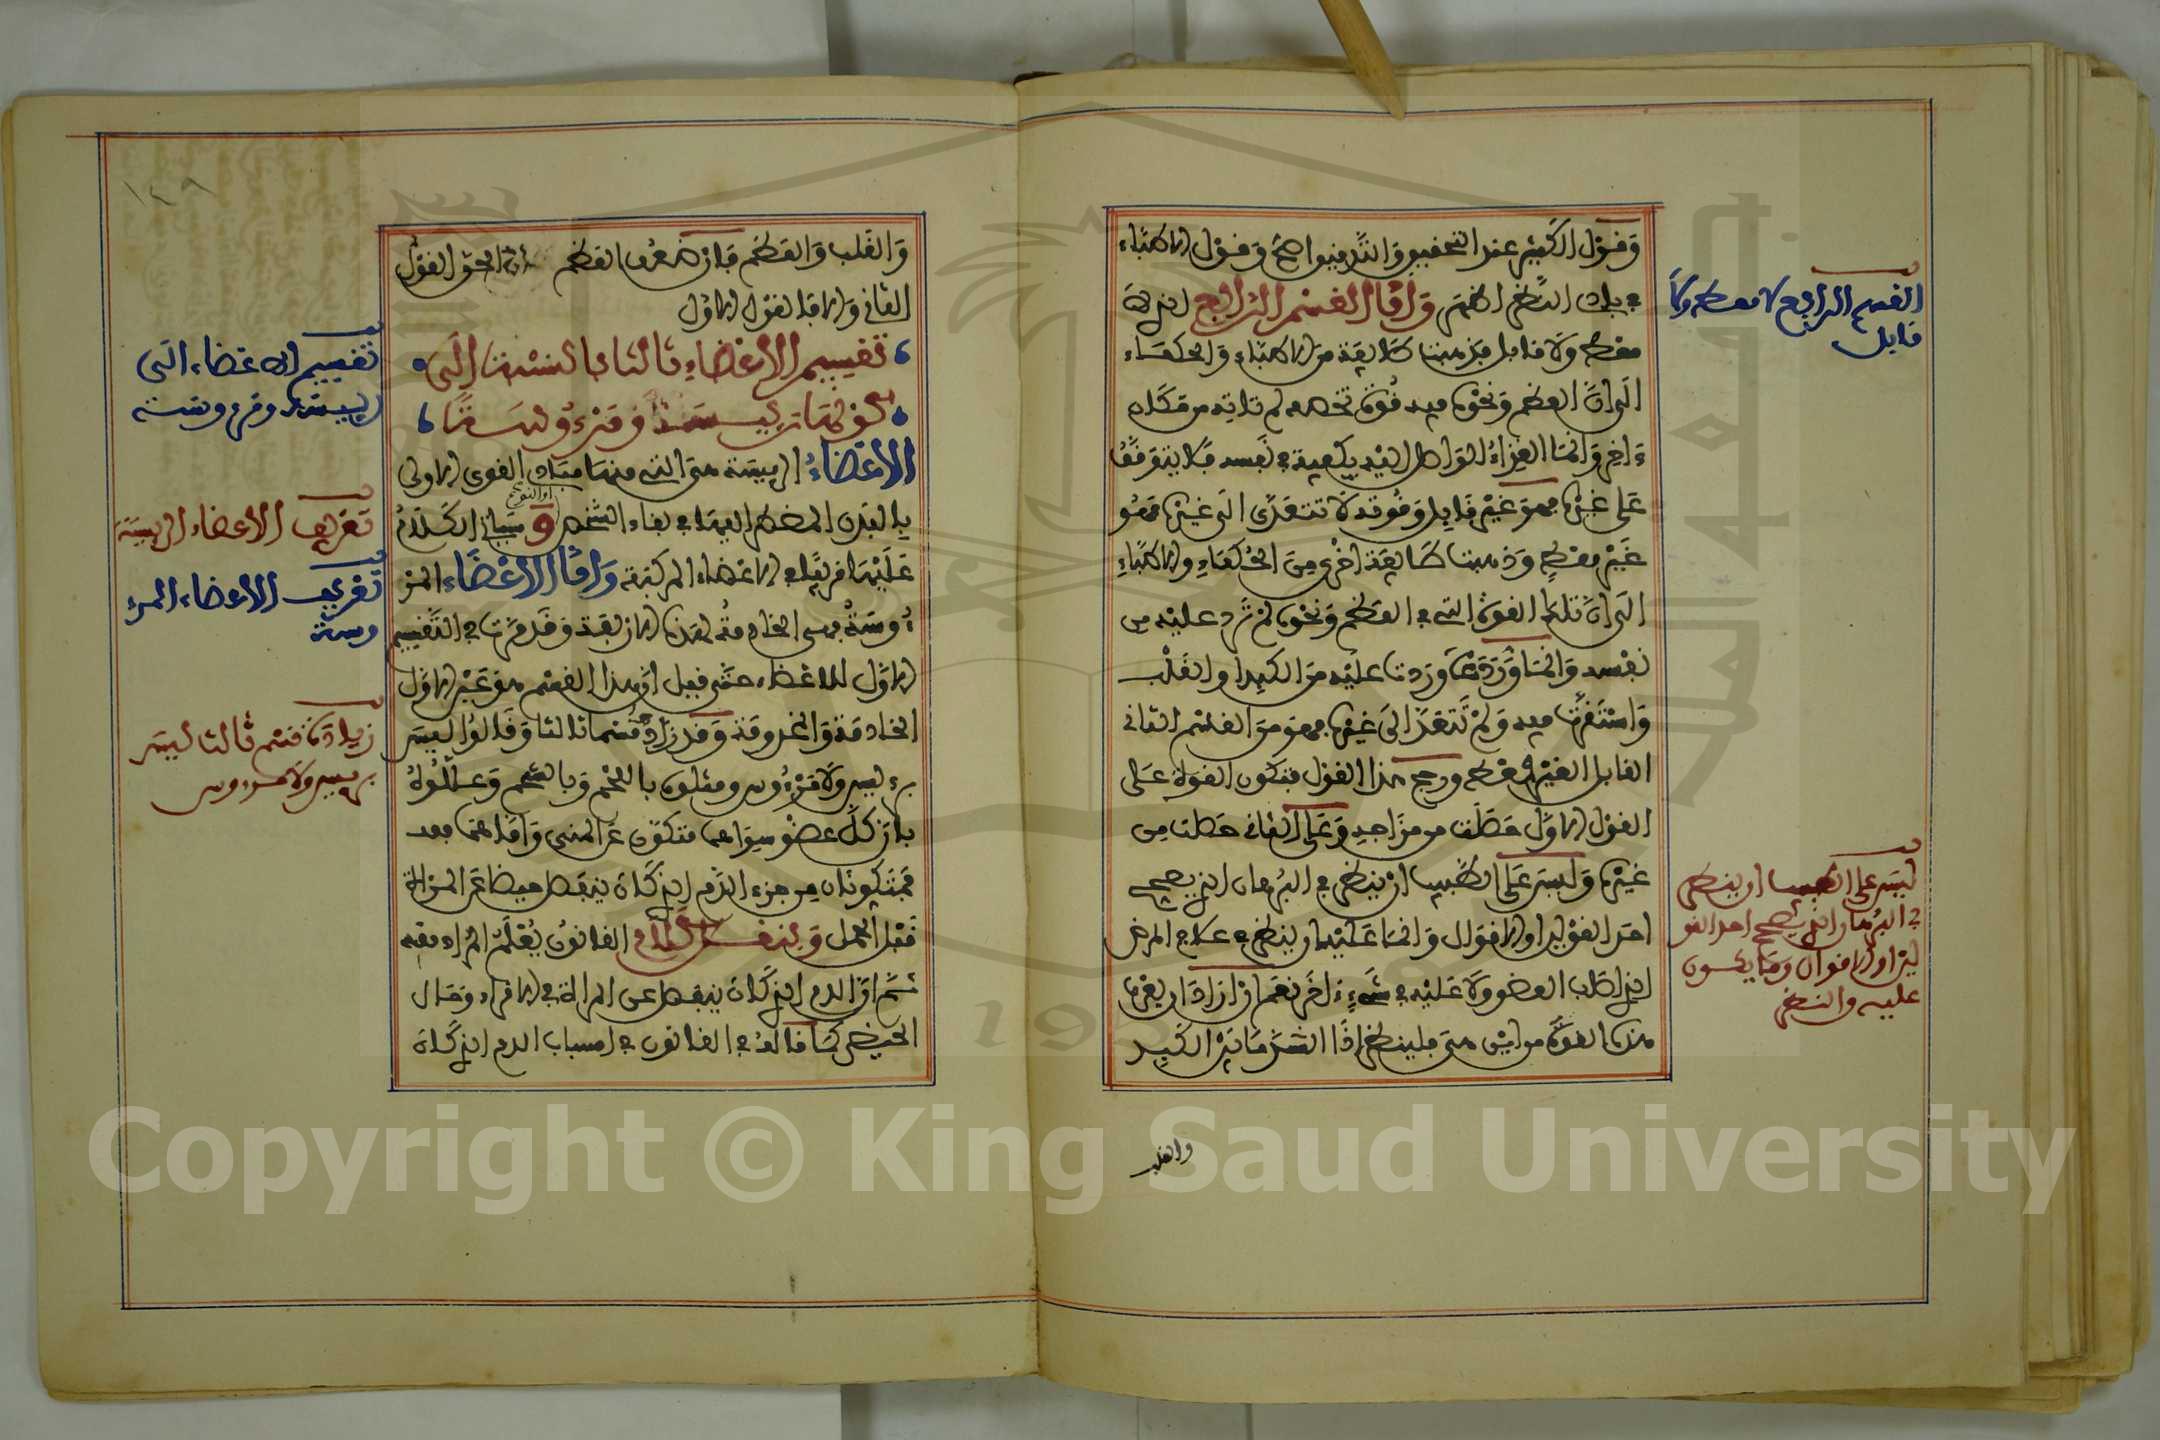 وقول الكثير عند التحقيق والتدقيق اصح وقول الاطباء
في بادئ النظر اظهر واما القسم الرابع الذي لا
معط ولا قابل فذهبت طائفة من الاطباء والحكماء
الى ان العظم ونحوه فيه قوة تخصه لم تاته من مكان
ءاخر وانما الغذاء الواصل اليه يكفيه في نفسه فلا يتوقف
على غيره فهو غير قابل وقوته لا تتعدى الى غيره فهو
غير معط وذهبت طائفة اخرى من الحكماء والاطباء
الى ان تلك القوة التي في العظم ونحوه لم ترد عليه من
نفسه وانما وردت عليه من الكبد او القلب
واستقرت فيه ولم تتعد الى غيره فهو من القسم الثاني
القابل الغير معط ورجح هذا القول فتكون القوة على
القول الاول حصلت من مزاجه وعلى الثاني حصلت من
غيره وليس على الطبيب ان ينظر في البرهان الذي يصحح
احد القولين او الاقوال وانما عليه ان ينظر في علاج المرض
الذي اصاب العضو ولا عليه في شيء زاد نعم ان اراد ان يعرف
هذه القوة من اين هي فلينظر اذا انسد ما بين الكبد
والقلب
القسم الرابع لا معط ولا
قابل
ليس على الطبيب ان ينظر
في البرهان الذي يصحح احد القو
لين او الاقوال وما يكون
عليه والنظر
١٢٩
والقلب والعظم فان ضعف العظم الحق القول
الثاني والا فالقول الاول
تقسيم الاعضاء ثالثا بالنسبة الى
كونها رئيسة ومرءوسة
الاعضاء الرئيسة هي التي منها مبادئ القوى الاولى
بالبدن المضطر اليها في بقاء الشخص او النوع وسياتي الكلام
عليها قريبا في الاعضاء المركبة واما الاعضاء المر
ءوسة فهي الخادمة لهذه الاربعة وقد مرت في التقسيم
الاول للاعضاء حتى قيل ان هذا القسم هو عين الاول
الخادمة والمخدومة وقد زادوا قسما ثالثا وقالوا ليس
برئيس ولا مرءوس ومثلوه باللحم وبالشحم وعللوه
بان كل عضو سواهما متكون عن المني واما هما فقد
فيتكونان من جزء الدم الذي كان ينفصل حيضا عن المراة
قبل الحمل وبنص كلام القانون يعلم المراد منه
ثم ان الدم الذي كان ينفصل عن المراة في الاقراء وحال
الحيض كما قاله في القانون في اسباب الدم الذي كان
تقسيم الاعضاء الى
رئيسة ومرءوسة
تعريف الاعضاء الرئيسة
تعريف الاعضاء المرء
وسة
زيادة قسم ثالث ليس
برئيس ولا مرءوس
Copyright © King Saud University